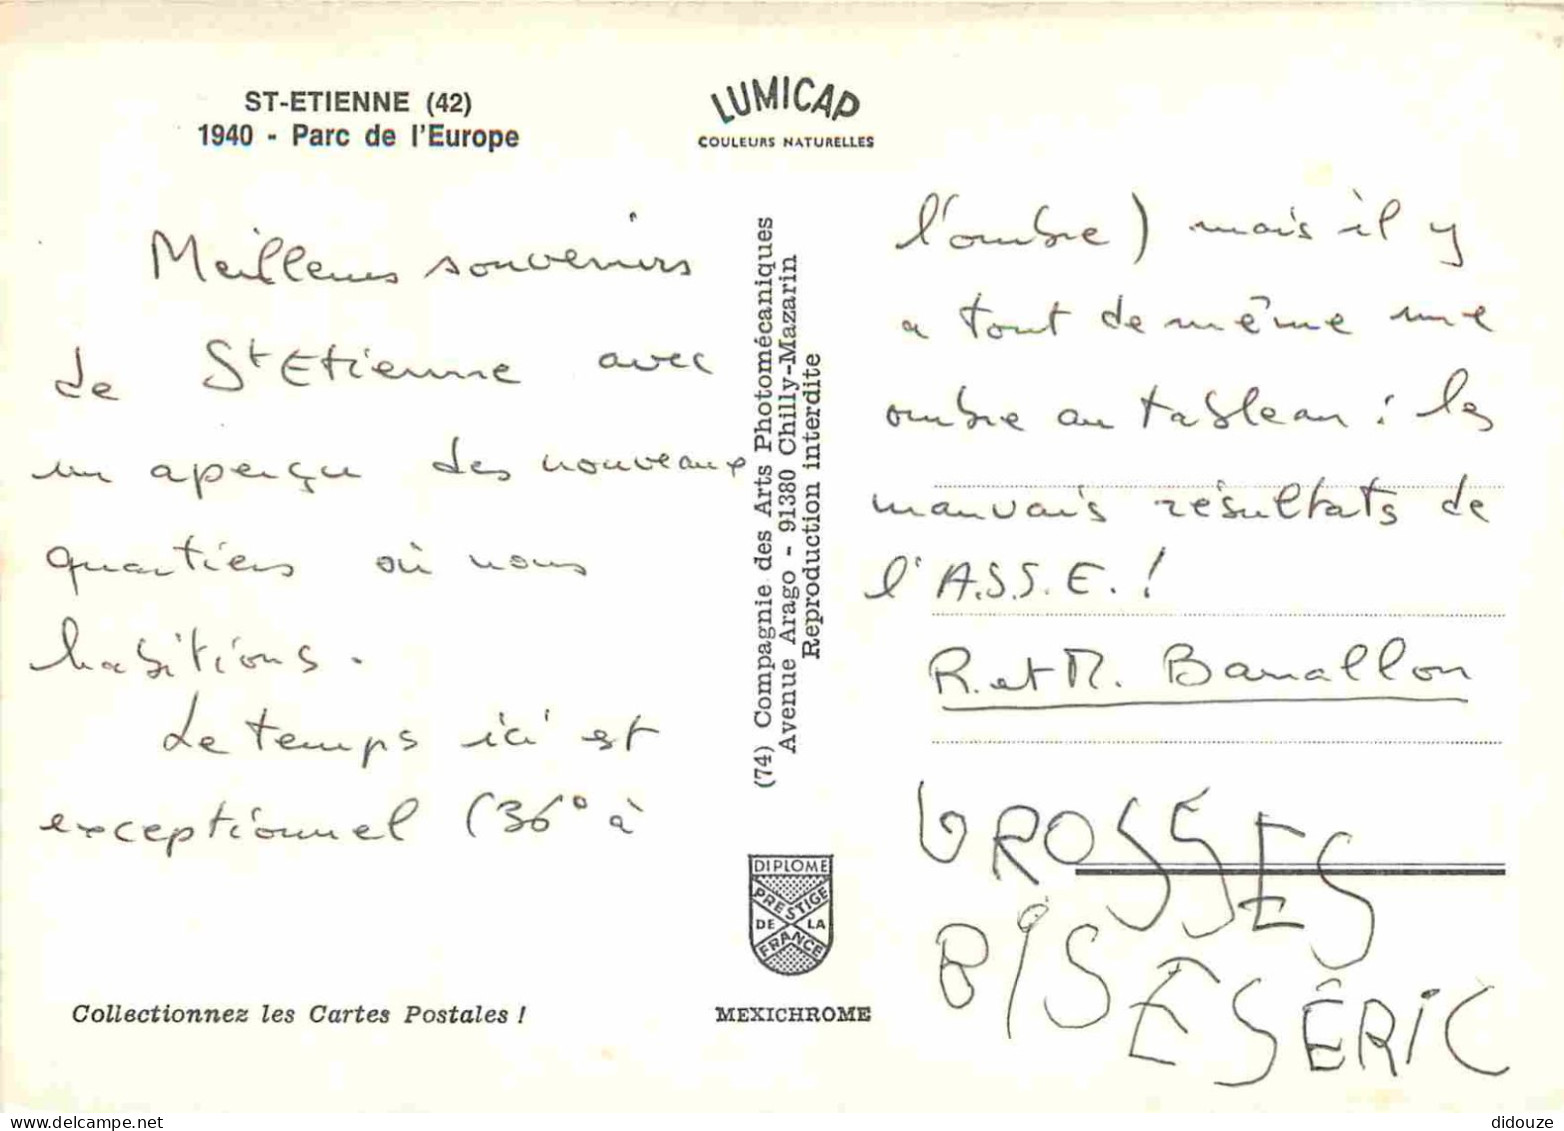 ST-ETIENNE (42)
1940 - Parc de l'Europe
LUMICAP
COULEURS NATURELLES
Meilleurs souvenirs
de St Etienne avec
un aperçu des nouveaux
quartiers où nous
habitions.
Le temps ici est
exceptionnel (36° à
l'ombre) mais il y
a tout de même une
ombre au tableau : les
mauvais résultats de
l'A.S.S.E. !
R. et M. Banallon
GROSSES
BISES ERIC
(74) Compagnie des Arts Photomécaniques
Avenue Arago - 91380 Chilly-Mazarin
Reproduction interdite
DIPLOME
PRESTIGE
DE LA
FRANCE
Collectionnez les Cartes Postales !
MEXICHROME
didouze